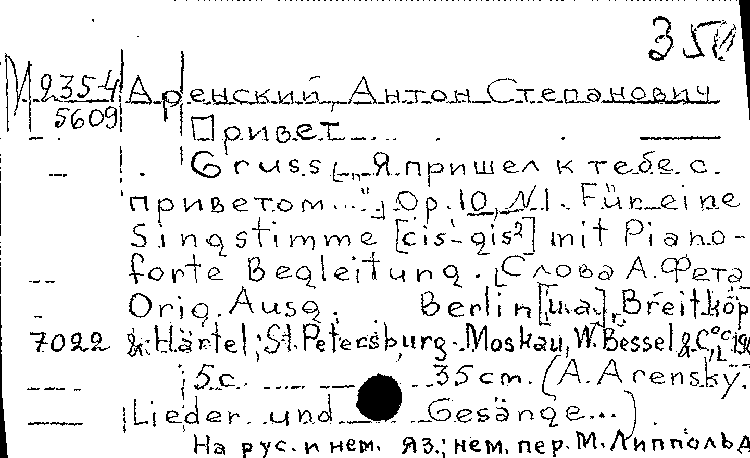 350
М 235-4 Аренский, Антон Степанович
5609 Привет
Gruss [„Я пришел к тебе с
приветом..."]. Op. 10, N1. Für eine
Singstimme [cis-gis²] mit Piano-
forte Begleitung. [Слова А. Фета
Orig. Ausg. Berlin [u.a.], Breitkop
7022 & Härtel; St. Petersburg - Moskau, W. Bessel & C°
5 с. 35 cm. (A. Arensky.
Lieder und Gesänge...)
На рус. и нем. яз.; нем. пер. М. Липпольд